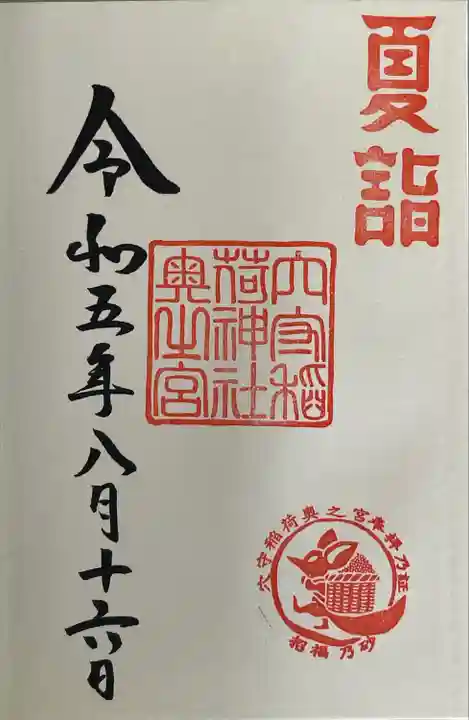 夏詣
穴守稲
荷神社
奥之宮
令和五年八月十六日
穴守稲荷奥之宮奉拝乃証
招福乃砂